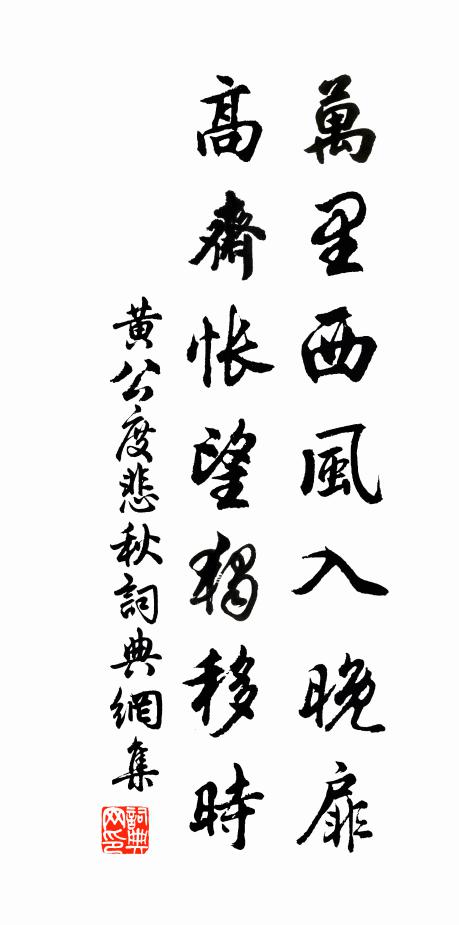 萬里西風入晚扉
高齋悵望獨移時
黃公度悲秋詞典網集
詞典网印